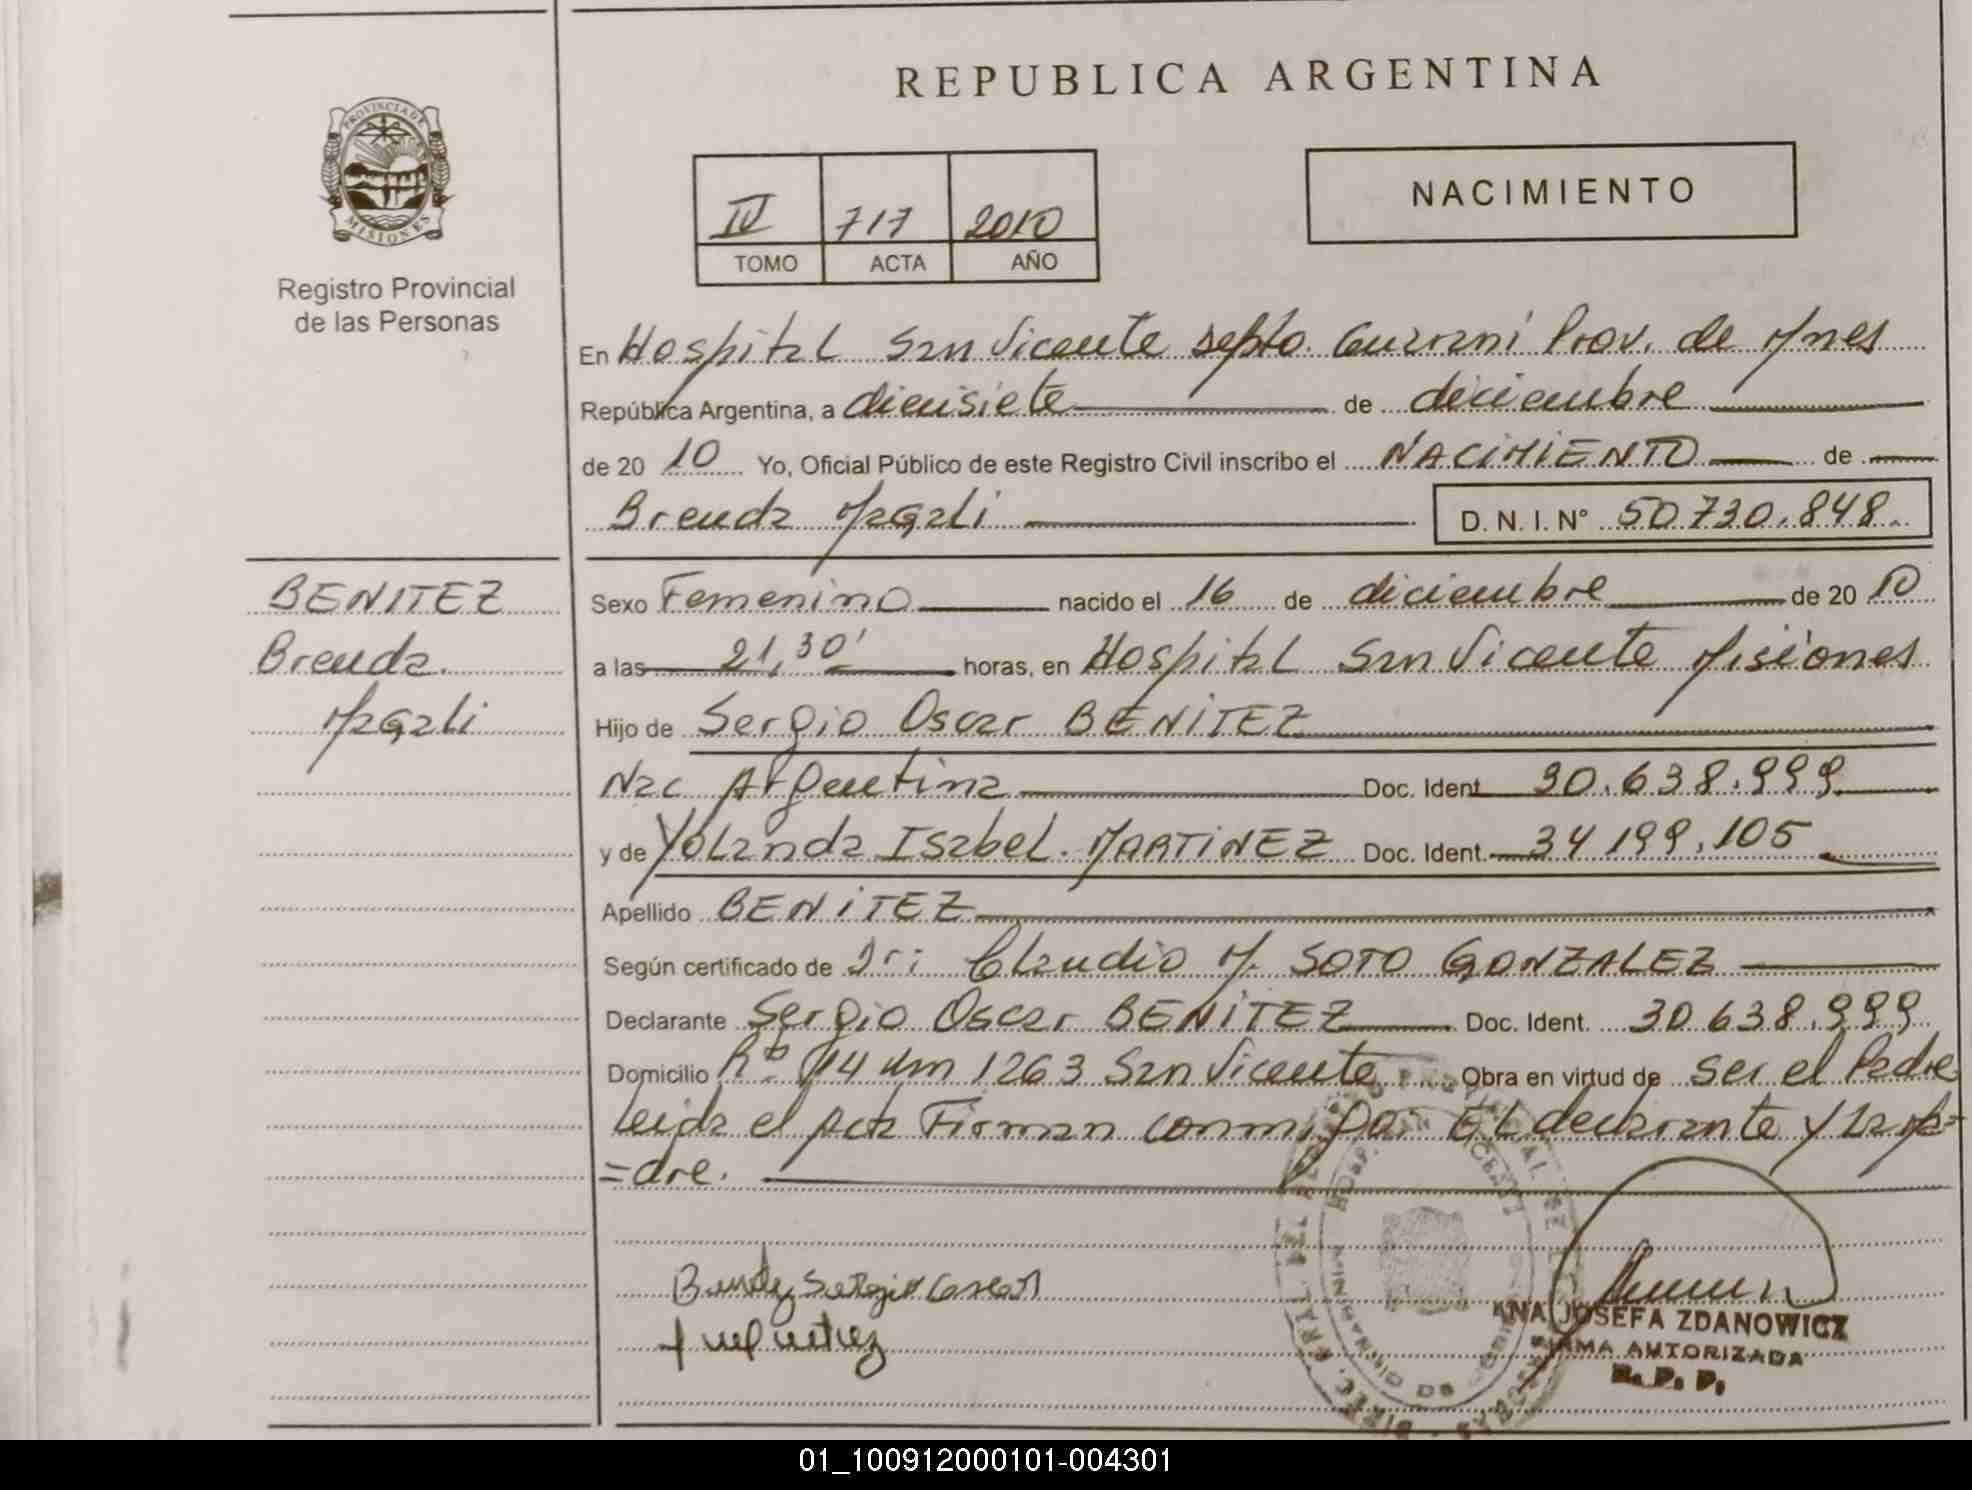 REPUBLICA ARGENTINA
PROVINCIA DE
MISIONES
Registro Provincial
de las Personas
IV 717 2010
TOMO ACTA AÑO
NACIMIENTO
En Hospital San Vicente depto. Guarani Prov. de Mnes
República Argentina, a diecisiete de diciembre
de 20 10 Yo, Oficial Público de este Registro Civil inscribo el NACIMIENTO de
Brenda Magali D. N. I. N° 50.730.848.
BENITEZ
Brenda.
Magali
Sexo Femenino nacido el 16 de diciembre de 20 10
a las 21,30' horas, en Hospital San Vicente Misiones
Hijo de Sergio Oscar BENITEZ
Nac Argentina Doc. Ident. 30.638.999
y de Yolanda Isabel. MARTINEZ Doc. Ident. 34 199.105
Apellido BENITEZ
Según certificado de Dr: Claudio M. SOTO GONZALEZ
Declarante Sergio Oscar BENITEZ Doc. Ident. 30 638.999
Domicilio Rta 14 Km 1263 San Vicente Obra en virtud de ser el Padre
Leida el acta Firman conmigo: El declarante y La Ma=
=dre.
Sergio
ANA JOSEFA ZDANOWICZ
FIRMA AUTORIZADA
R. P. P.
01_100912000101-004301